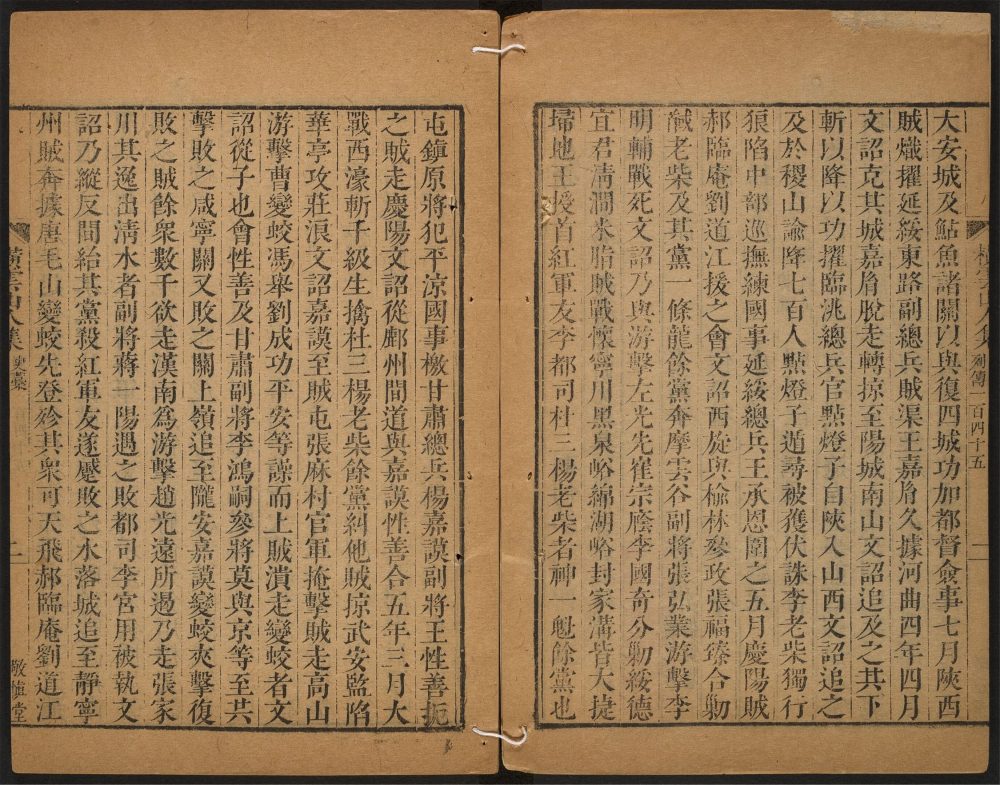 大安城及鮎魚諸關以與復四城功加都督僉事七月陝西
賊熾擢延綏東路副總兵賊渠王嘉胤久據河曲四年四月
文詔克其城嘉胤脫走轉掠至陽城南山文詔追及之其下
斬以降以功擢臨洮總兵官點燈子自陝入山西文詔追之
及於稷山諭降七百人點燈子遁尋被獲伏誅李老柴獨行
狼陷中部巡撫練國事延綏總兵王承恩圍之五月慶陽賊
郝臨庵劉道江援之會文詔西旋與楡林參政張福臻合勦
馘老柴及其黨一條龍餘黨奔摩雲谷副將張弘業游擊李
明輔戰死文詔乃與游擊左光先崔宗廕李國奇分勦綏德
宜君淸澗米脂賊戰懷寧川黑泉峪綿湖峪封家溝皆大捷
埽地王授首紅軍友李都司杜三楊老柴者神一魁餘黨也
橫雲山人集 列傳一百四十五
二
屯鎮原將犯平涼國事檄甘肅總兵楊嘉謨副將王性善扼
之賊走慶陽文詔從鄜州間道與嘉謨性善合五年三月大
戰西濠斬千級生擒杜三楊老柴餘黨糾他賊掠武安監陷
華亭攻莊浪文詔嘉謨至賊屯張麻村官軍掩擊賊走高山
游擊曹變蛟馮舉劉成功平安等譟而上賊潰走變蛟者文
詔從子也會性善及甘肅副將李鴻嗣參將莫與京等至共
擊敗之咸寧關又敗之關上嶺追至隴安嘉謨變蛟夾擊復
敗之賊餘衆數千欲走漢南爲游擊趙光遠所遏乃走張家
川其逸出淸水者副將蔣一陽遇之敗都司李宮用被執文
詔乃縱反間紿其黨殺紅軍友遂蹙敗之水落城追至靜寧
州賊奔據唐毛山變蛟先登殄其衆可天飛郝臨庵劉道江
橫雲山人集 史藁
二
敬愼堂